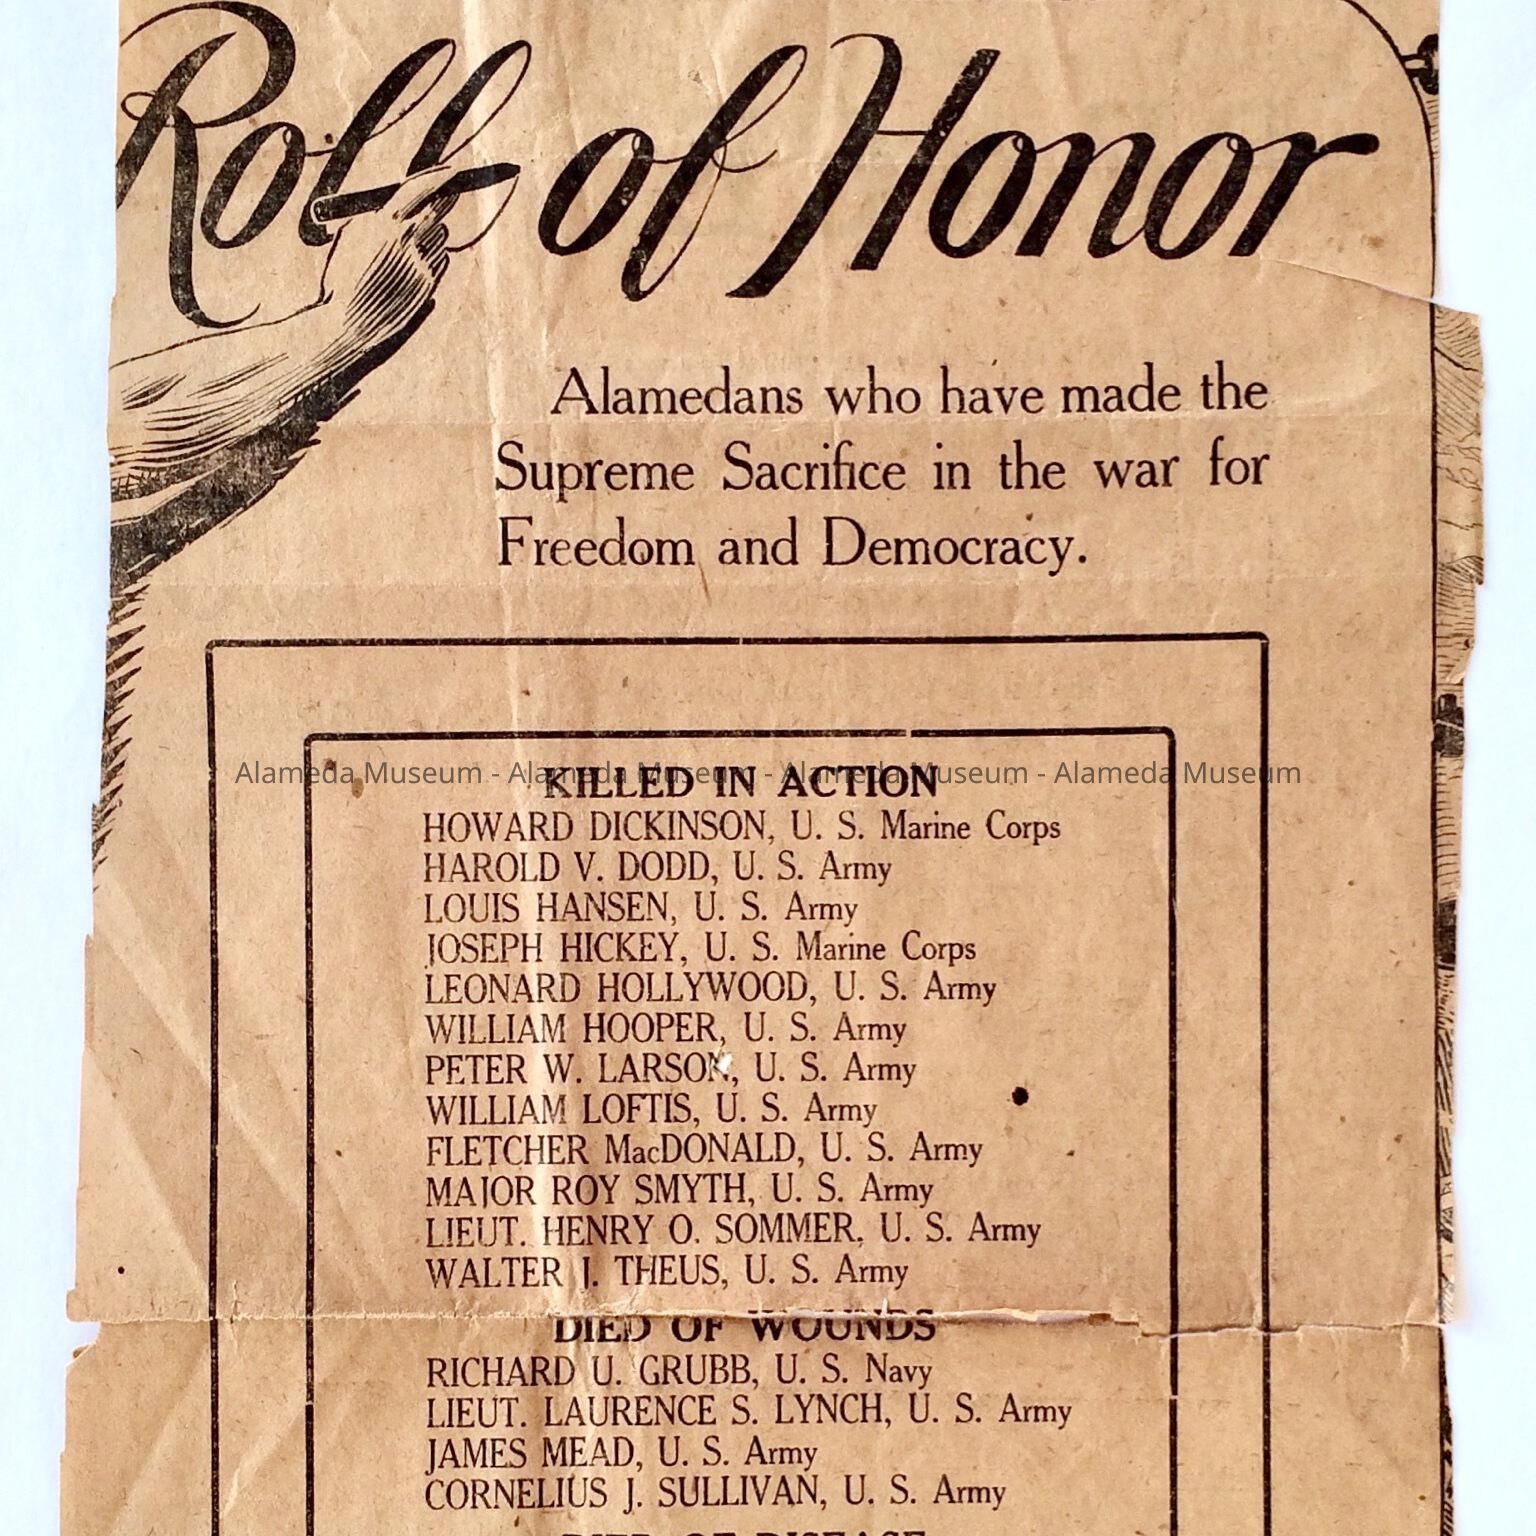 Roll of Honor
Alamedans who have made the
Supreme Sacrifice in the war for
Freedom and Democracy.
Alameda Museum - Alameda Museum - Alameda Museum - Alameda Museum
KILLED IN ACTION
HOWARD DICKINSON, U. S. Marine Corps
HAROLD V. DODD, U. S. Army
LOUIS HANSEN, U. S. Army
JOSEPH HICKEY, U. S. Marine Corps
LEONARD HOLLYWOOD, U. S. Army
WILLIAM HOOPER, U. S. Army
PETER W. LARSON, U. S. Army
WILLIAM LOFTIS, U. S. Army
FLETCHER MacDONALD, U. S. Army
MAJOR ROY SMYTH, U. S. Army
LIEUT. HENRY O. SOMMER, U. S. Army
WALTER J. THEUS, U. S. Army
DIED OF WOUNDS
RICHARD U. GRUBB, U. S. Navy
LIEUT. LAURENCE S. LYNCH, U. S. Army
JAMES MEAD, U. S. Army
CORNELIUS J. SULLIVAN, U. S. Army
DIED OF DISEASE